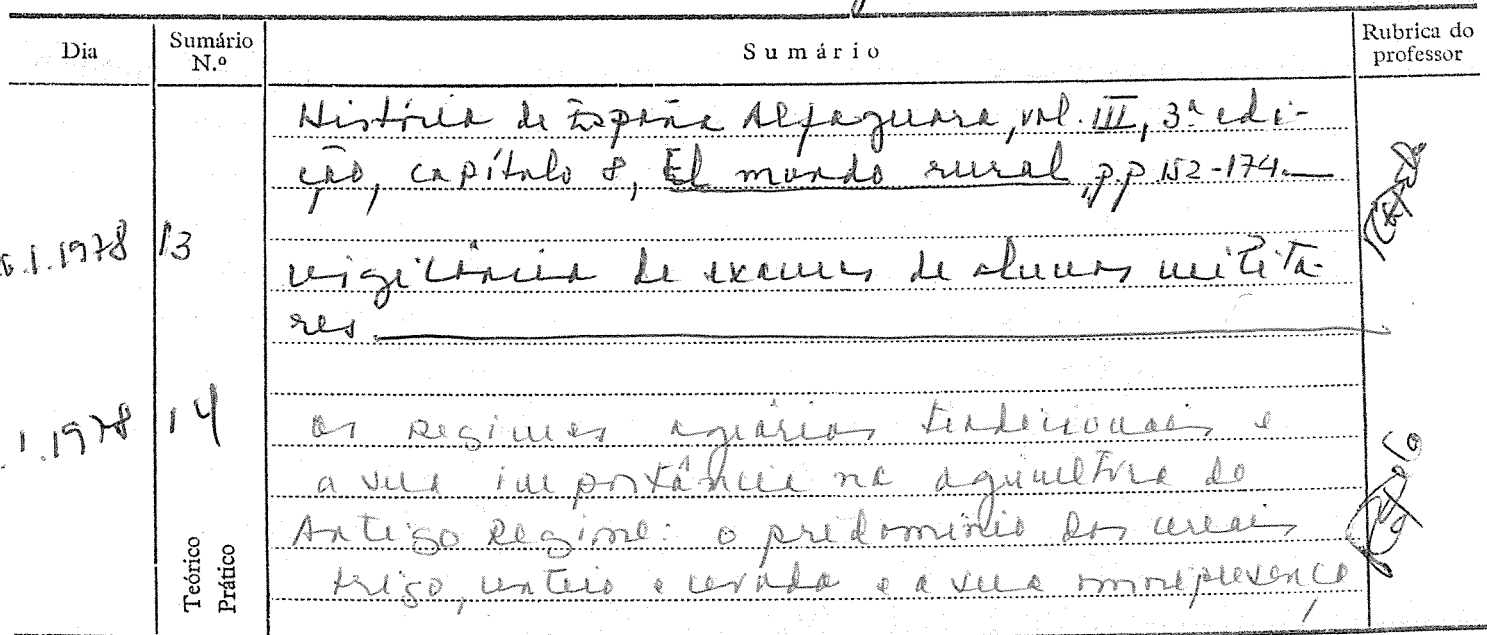 Dia Sumário N.º Sumário Rubrica do professor
História de España Alfaguara, vol. III, 3ª edi-
ção, capítulo 8, El mundo rural, pp. 152-174.—
.1.1978 13
vigilância de exames de alunos milita-
res.
.1.1978 14 Os regimes agrários tradicionais e
a sua importância na agricultura do
Antigo Regime: o predomínio dos cereais
trigo, centeio e cevada e a sua omnipresença
Teórico
Prático